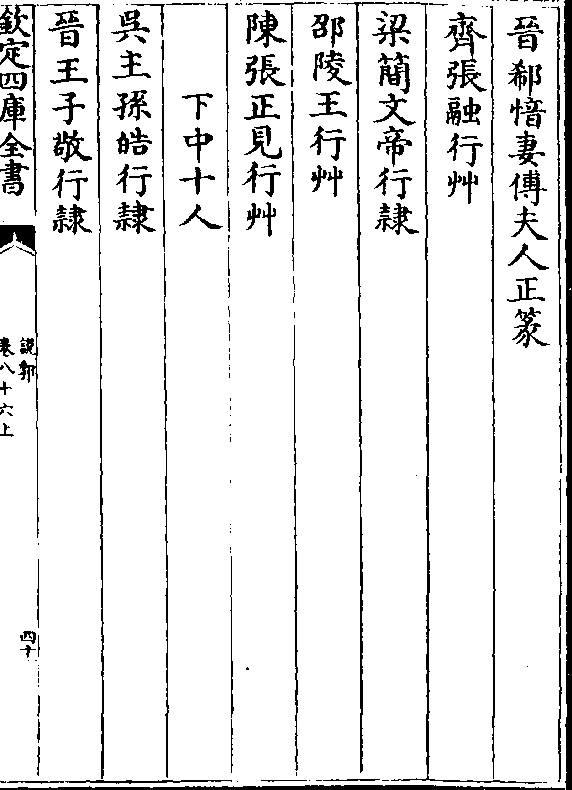 晉郗愔妻傅夫人正篆
齊張融行艸
梁簡文帝行隷
邵陵王行艸
陳張正見行艸
下中十人
呉主孫皓行隷
晉王子敬行隷
欽定四庫全書
說郛
卷八十六上
四十